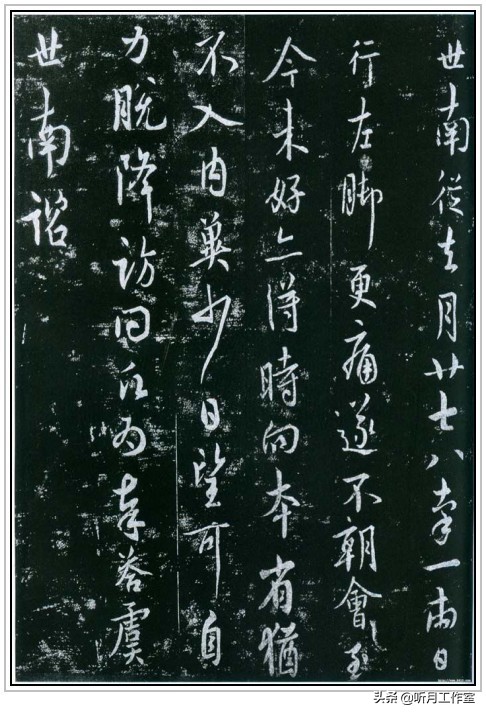 世南從去月廿七八牵一兩日
行左脚更痛遂不朝會至
今未好亦得時向本省猶
不入内冀少日望可自
力脱降訪問乞为奉荅虞
世南諮
头条 @听月工作室